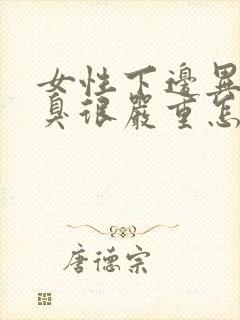 女性下邊異
臭很嚴重怎
唐德宗